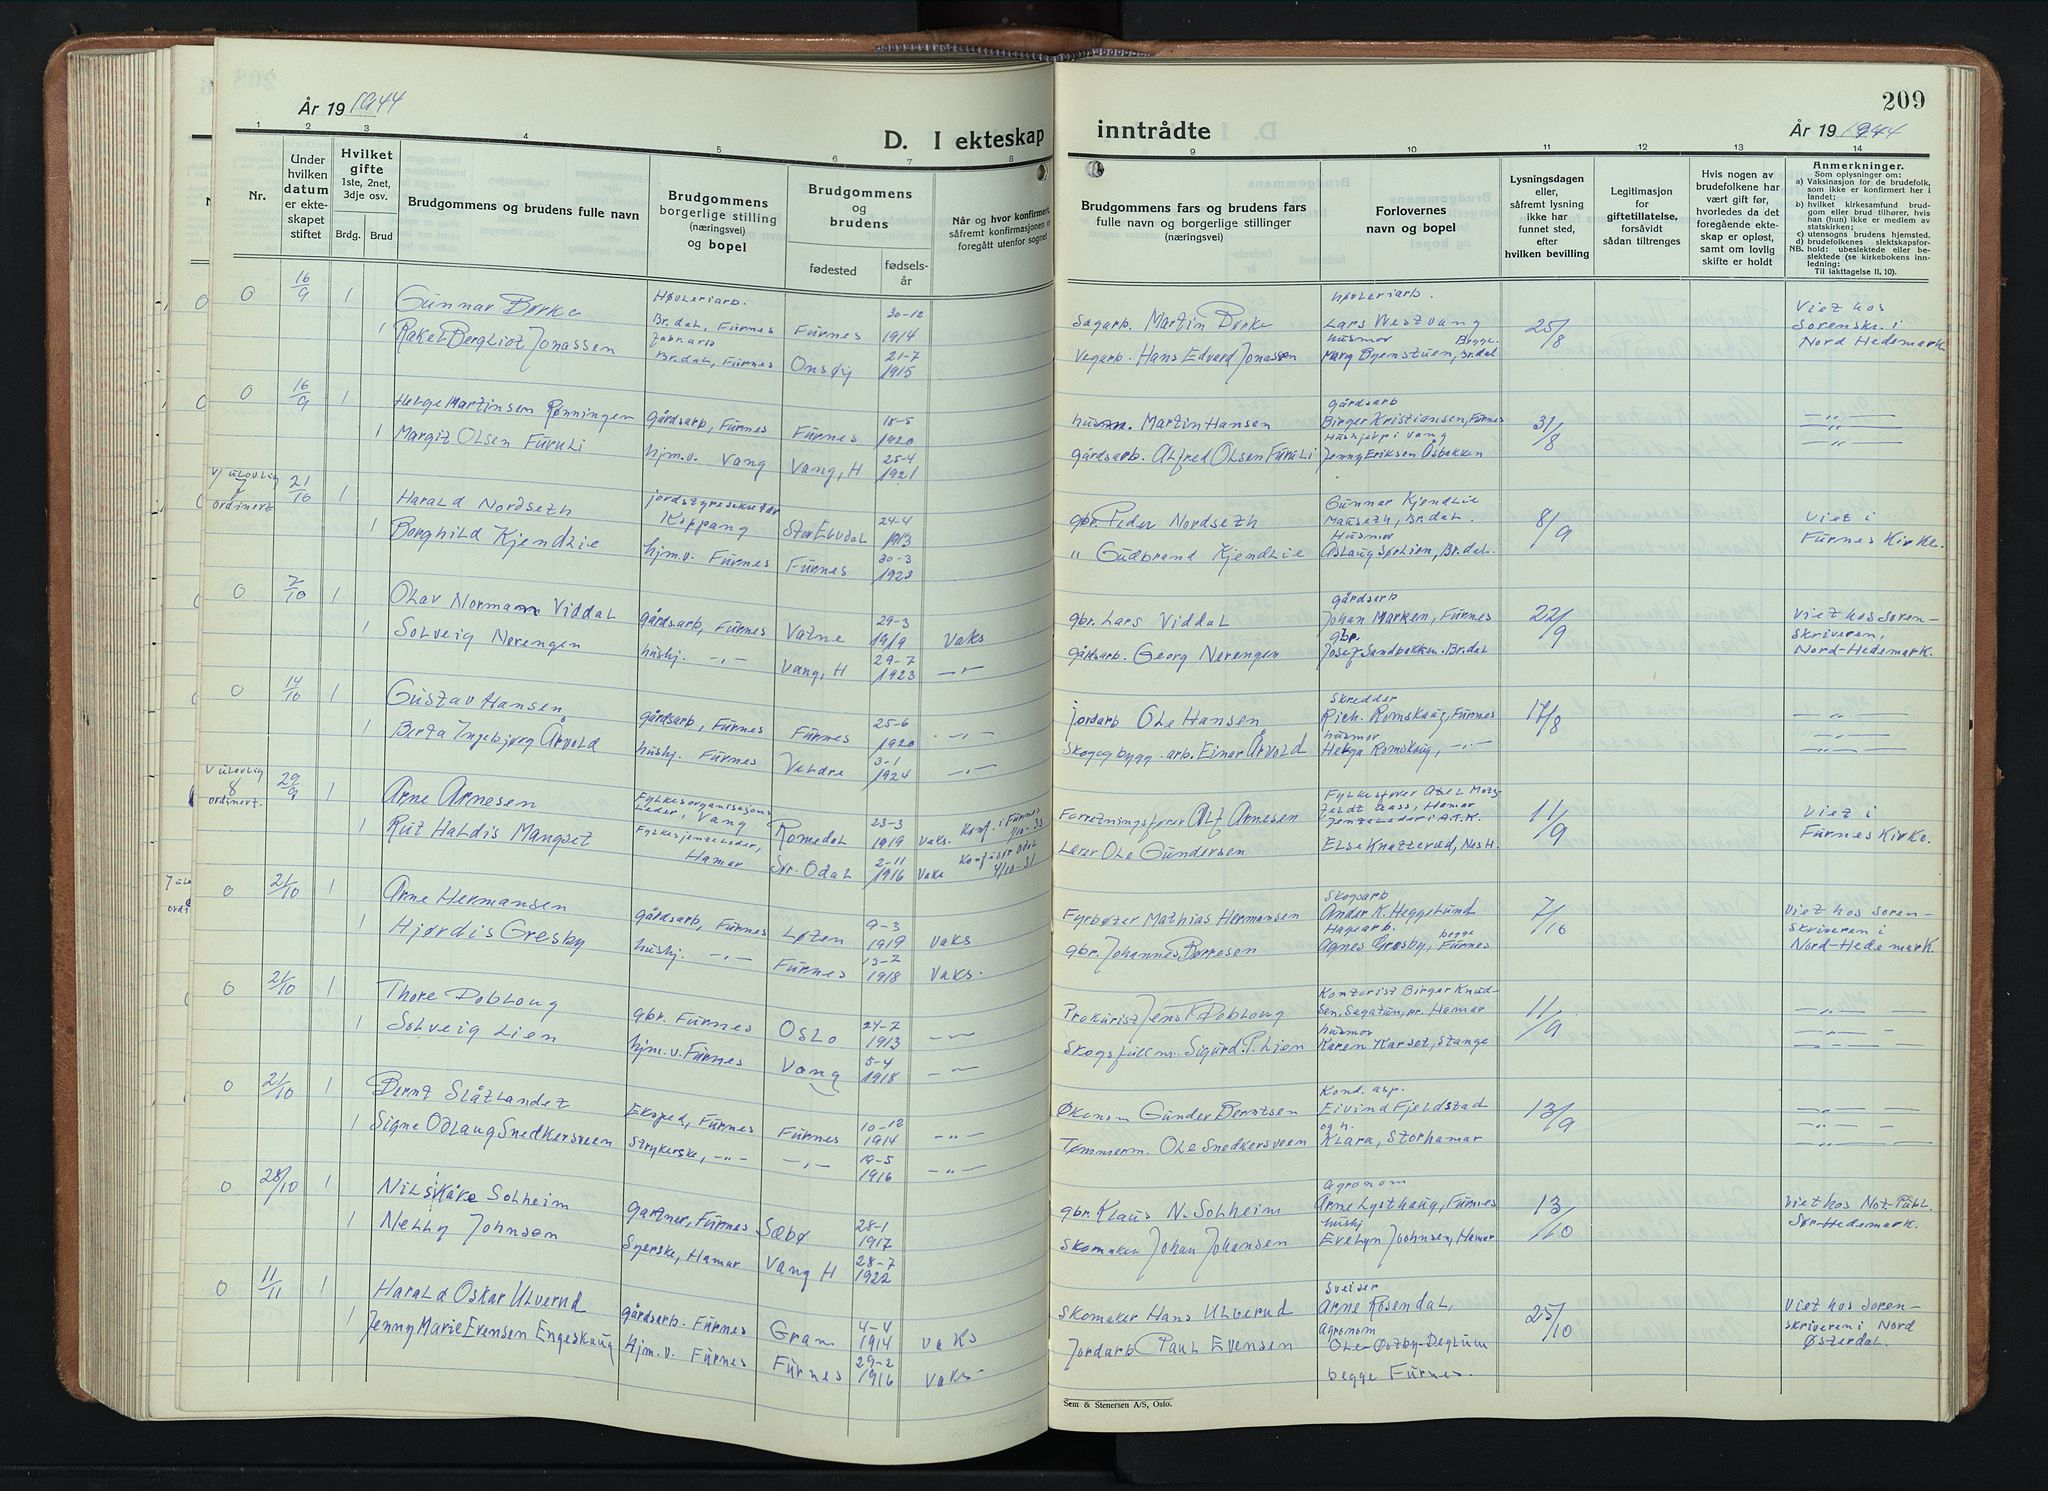 År 19 1944
D. I ekteskap
1 2 3 4 5 6 7 8
Nr.
Under hvilken datum er ekteskapet stiftet
Hvilket gifte 1ste, 2net, 3dje osv.
Brdg. Brud
Brudgommens og brudens fulle navn
Brudgommens borgerlige stilling (næringsvei) og bopel
Brudgommens og brudens
fødested
fødselsår
Når og hvor konfirmert, såfremt konfirmasjonen er foregått utenfor sognet
0 16/9 1 Gunnar Børke Høvleriarb. Br.dal, Furnes Furnes 30-12 1914
1 Rakel Bergliot Jonassen fabr.arb Br.dal, Furnes Onsøy 21-7 1915
0 16/9 1 Helge Martinsen Rønningen gårdsarb, Furnes Furnes 18-5 1920
1 Margit Olsen Furuli hjm.v. Vang Vang, H 25-4 1921
v/ ulovlig 7 ordinert 21/10 1 Harald Nordseth jordstyresekretær Koppang Stor Elvdal 24-4 1913
1 Borghild Kjendlie hjm.v. Furnes Furnes 30-3 1923
0 7/10 1 Olav Normann Viddal gårdsarb, Furnes Vatne 29-3 1919 Vaks
1 Solveig Nerengen hushj. -,,- Vang, H 29-7 1923 -,,-
0 14/10 1 Gustav Hansen gårdsarb, Furnes Furnes 25-6 1920 -,,-
1 Berta Ingebjørg Årvold hushj. Furnes Veldre 3-1 1924 -,,-
v ulovlig 8 ordinert. 29/9 1 Arne Arnesen Fylkesorganisasjons leder, Vang Romedal 23-3 1919 Vaks. Konf. i Furnes 1/10-33
1 Rut Haldis Mangset Fylkesjenteleder, Hamar Sør-Odal 2-11 1916 Vaks Konf i Sør Odal 4/10-31
0 21/10 1 Arne Hermansen gårdsarb, Furnes Løten 9-3 1919 Vaks
1 Hjørdis Gresby hushj. -,,- Furnes 13-7 1918 Vaks.
0 21/10 1 Thore Dobloug gbr. Furnes Oslo 24-7 1913 -,,-
1 Solveig Lien hjm.v. Furnes Vang 5-4 1918 -,,-
0 21/10 1 Bernt Slåtlandet Eksped, Furnes Furnes 10-12 1914 -,,-
1 Signe Odlaug Snedkersveen Strykerske, -,,- -,,- 19-5 1916 -,,-
0 28/10 1 Nils Kåre Solheim Gartner, Furnes Sæbø 28-1 1917
1 Nelly Johnsen Syerske, Hamar Vang H 28-7 1922
0 11/11 1 Harald Oskar Ulverud gårdsarb. Furnes Gran 4-4 1914 Vaks
1 Jenny Marie Evensen Engeskaug Hjm.v. Furnes Furnes 29-2 1916 Vaks-
209
inntrådte
År 19 1944
9 10 11 12 13 14
Brudgommens fars og brudens fars fulle navn og borgerlige stillinger (næringsvei)
Forlovernes navn og bopel
Lysningsdagen eller, såfremt lysning ikke har funnet sted, efter hvilken bevilling
Legitimasjon for giftetillatelse, forsåvidt sådan tiltrenges
Hvis nogen av brudefolkene har vært gift før, hvorledes da det foregående ekteskap er opløst, samt om lovlig skifte er holdt
Anmerkninger.
Som oplysninger om:
a) Vaksinasjon for de brudefolk, som ikke er konfirmert her i landet;
b) hvilket kirkesamfund brudgom eller brud tilhører, hvis han (hun) ikke er medlem av statskirken;
c) utensogns brudens hjemsted.
d) brudefolkenes slektskapsforhold: ubeslektede eller beslektede (se kirkebokens innledning:
NB.
Til iakttagelse II, 10).
Sagarb. Martin Børke høvleriarb. Lars Westvang 25/8 Viet hos Sorenskr. i Nord Hedemark
Vegarb. Hans Edvard Jonassen husmor Marg Bjenstuen, Br.dal Begge.
husm. Martin Hansen gårdsarb Birger Kristiansen, Furnes 31/8 -,,-
gårdsarb. Alfred Olsen Furuli Hushjelp i Vang Jenny Eriksen Åsbakken -,,-
gbr. Peder Nordseth Gunnar Kjendlie Mauseth, Br.dal. 8/9 Viet i Furnes Kirke.
,, Gudbrand Kjendlie Husmor Aslaug Sørlien, Br.dal.
gbr. Lars Viddal gårdsarb Johan Marken, Furnes 22/9 Viet hos Sorenskriveren, Nord-Hedemark.
gårdsarb. Georg Nerengen gbr. Josef Sandbakken. Br.dal
jordarb Ole Hansen Skredder Rich. Romskaug, Furnes 17/8 -,,-
Skog og bygg. arb. Einar Årvold husmor Helga Romskaug, -,,- -,,-
Forretningsfører Alf Arnesen Fylkesfører Axel Motzfeldt Aass, Hamar 11/9 Viet i Furnes Kirke.
Lærer Ole Gundersen Jenteleder i A.T.K. Else Knatterud, Nes H.
Fyrbøter Mathias Hermansen Skogsarb Ander K. Heggelund 7/10 Viet hos Sorenskriveren i Nord-Hedemark
gbr. Johannes Børresen Hagearb. Agnes Gresby, begge Furnes
Prokurist Jens K. Dobloug Kontorist Birger Knudsen, Sagatun, pr. Hamar 11/9 -,,-
Skogsfullm. Sigurd P. Lien husmor Karen Karset, Stange -,,-
Økonom Gunder Berntsen Kond. asp. Eivind Fjeldstad 13/9 -,,-
Tømmerm. Ole Snedkersveen og h. Klara, Storhamar -,,-
gbr. Klaus N. Solheim Agronom Arne Lysthaug, Furnes 13/10 Viet hos Not-Publ. Sør-Hedemark.
Skomaker Johan Johansen hushj Evelyn Joohnsen, Hamar
Skomaker Hans Ulverud Sveiser Arne Rosendal, 25/10 Viet hos Sorenskriveren i Nord Østerdal.
Jordarb Paul Evensen Agronom Ole Østby-Deglum begge Furnes.
Sem & Stenersen A/S, Oslo.